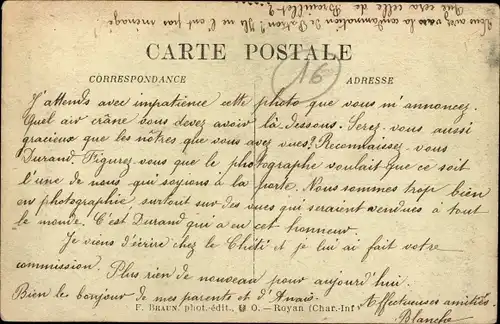 Vous avez vu la condamnation de Patron? Il ne l'ont pas ménagé!
Que sera celle de Breuillet?
CARTE POSTALE
16
CORRESPONDANCE
ADRESSE
J'attends avec impatience cette photo que vous m'annoncez.
Quel air crâne vous devez avoir là-dessous. Serez-vous aussi
gracieux que les nôtres que vous avez vues? Reconnaissez-vous
Durand. Figurez-vous que le photographe voulait que ce soit
l'une de nous qui soyions à la porte. Nous sommes trop bien
en photographie, surtout sur des vues qui seraient vendues à tout
le monde. C'est Durand qui a eu cet honneur.
Je viens d'écrire chez le Chéti et je lui ai fait votre
commission. Plus rien de nouveau pour aujourd'hui.
Bien le bonjour de mes parents et d'Anaïs.
Affectueuses amitiés.
F. BRAUN, phot.-édit., O. — Royan (Char.-Inf.)
Blanche